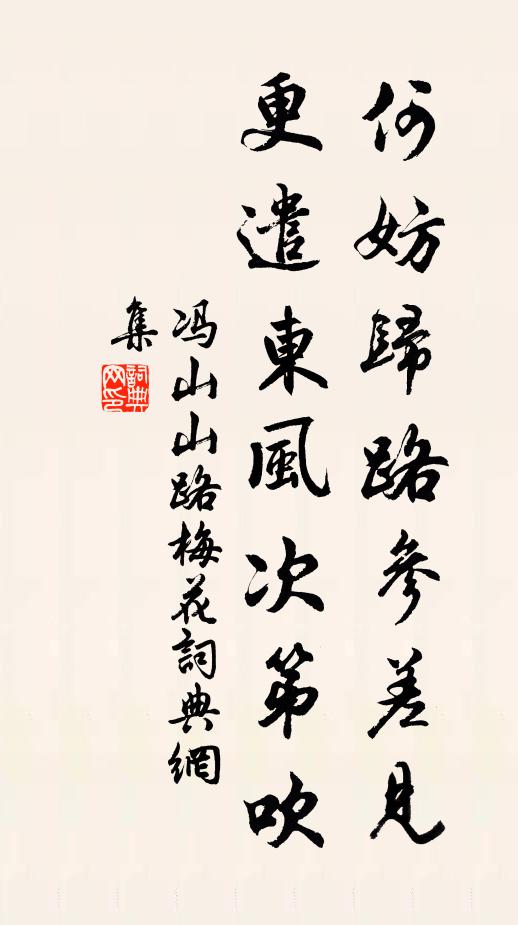 何妨歸路參差見
更遣東風次第吹
冯山山路梅花詞典網
集
詞典
网印